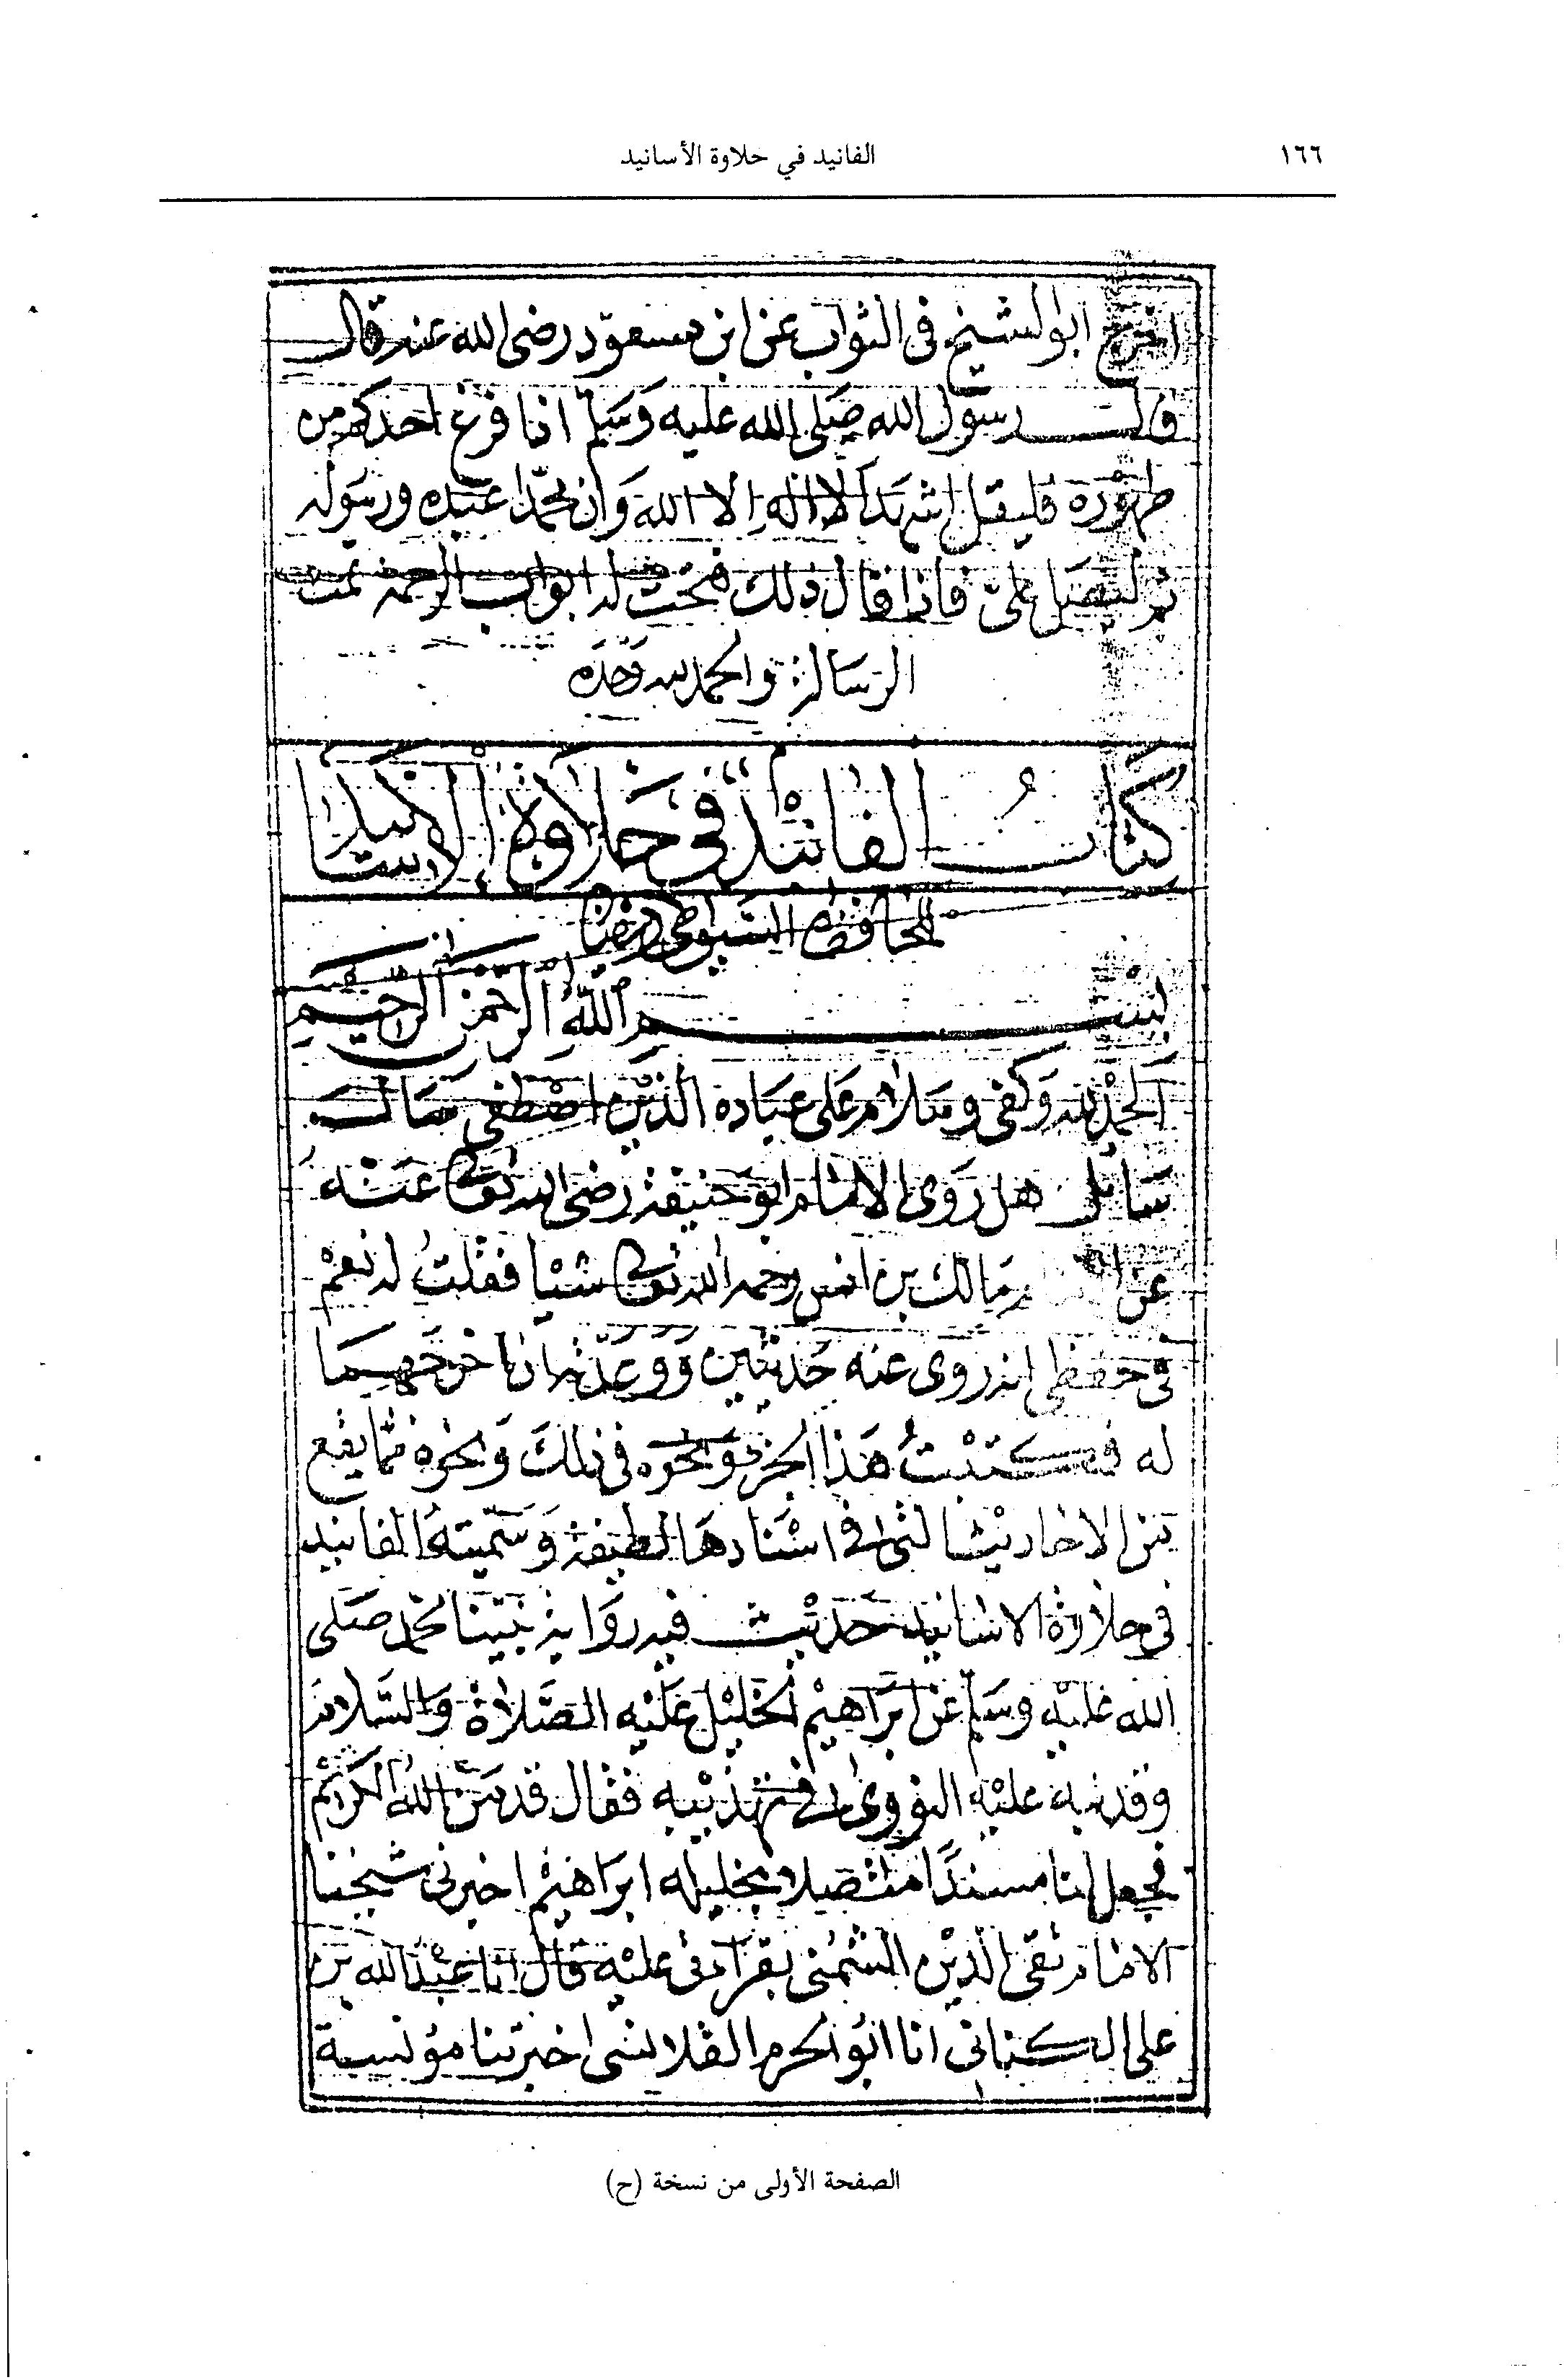 ١٦٦
الفانيد في حلاوة الأسانيد
اخرج ابو الشيخ فى الثواب عن ابن مسعود رضى الله عنه قال
قال رسول الله صلى الله عليه وسلم اذا فرغ احدكم من
طهوره فليقل اشهد ان لا اله الا الله وان محمدا عبده ورسوله
ثم ليصل علىّ فاذا قال ذلك فتحت له ابواب الرحمة تمت
الرسالة والحمد لله وحده
كتاب الفانيد فى حلاوة الاسانيد
للحافظ السيوطى
بسم الله الرحمن الرحيم
الحمد لله وكفى وسلام على عباده الذين اصطفى سال
سائل هل روى الامام ابو حنيفة رضى الله تعالى عنه
عن مالك بن انس رحمه الله تعالى شيا فقلت له نعم
فى حفظى انه روى عنه حديثين ووعدته ان اخرجهما
له فكتبت هذا الجزء ونحوه فى ذلك ونحوه مما يقع
من الاحاديث التى فى اسنادها لطيفة وسميته الفانيد
فى حلاوة الاسانيد حديث فيه رواية نبينا محمد صلى
الله عليه وسلم عن ابراهيم الخليل عليه الصلاة والسلام
وقد نبه عليه النووى فى تهذيبه فقال قد منّ الله الكريم
فجعل لنا مسندا متصلا بخليله ابراهيم اخبرنى شيخنا
الامام تقى الدين الشمنى بقراءتى عليه قال انا عبد الله بن
على الكنانى انا ابو الحرم القلانسى اخبرتنا مؤنسة
الصفحة الأولى من نسخة (ح)